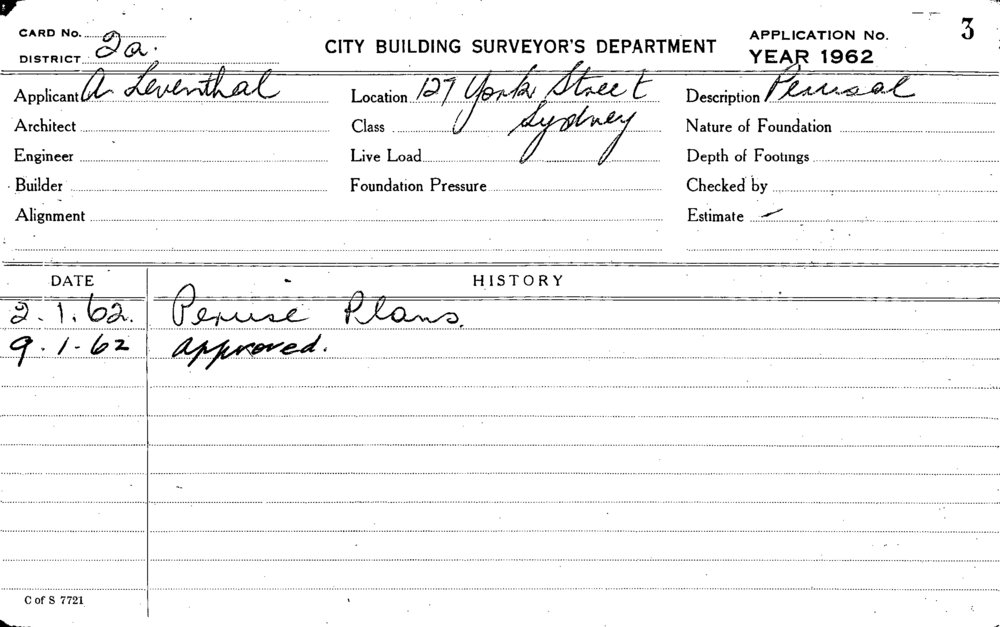 CARD No. CITY BUILDING SURVEYOR'S DEPARTMENT APPLICATION No. 3
DISTRICT 2a. YEAR 1962
Applicant A. Leventhal Location 127 York Street Description Perusal
Architect Class Sydney Nature of Foundation
Engineer Live Load Depth of Footings
Builder Foundation Pressure Checked by
Alignment Estimate –
DATE HISTORY
2.1.62. Peruse Plans.
9.1.62 approved.
C of S 7721